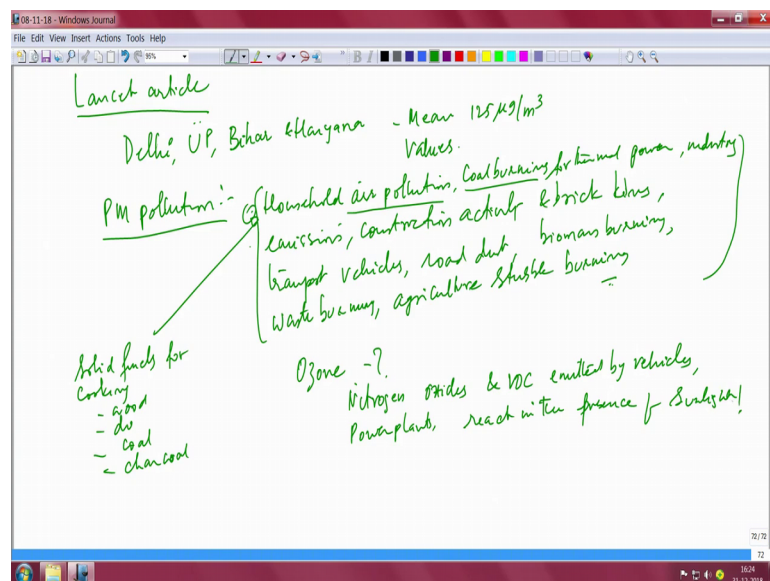 08-11-18 - Windows Journal
File Edit View Insert Actions Tools Help
95%
B I
Lancet article
Delhi, UP, Bihar & Haryana - Mean 125 μg/m³
Values.
PM pollution :- Household air pollution, Coal burning for thermal power, industry
emissions, construction activity & brick kilns,
transport vehicles, road dust, biomass burning,
waste burning, agriculture stubble burning
Solid fuels for
cooking
- wood
- coal
- charcoal
Ozone - ?
Nitrogen oxides & VOC emitted by vehicles,
Power plants, react in the presence of Sunlight!
72/72
72
16:24
31-12-2018